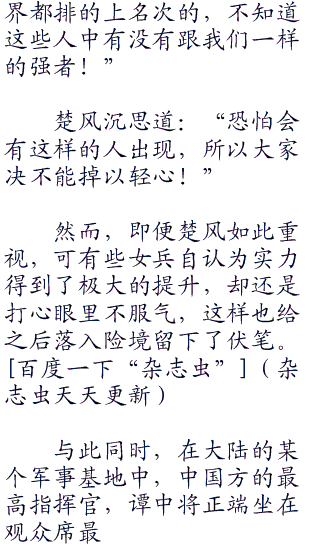 界都排的上名次的，不知道
这些人中有没有跟我们一样
的强者！”
楚风沉思道：“恐怕会
有这样的人出现，所以大家
决不能掉以轻心！”
然而，即便楚风如此重
视，可有些女兵自认为实力
得到了极大的提升，却还是
打心眼里不服气，这样也给
之后落入险境留下了伏笔。
[百度一下“杂志虫”]（杂
志虫天天更新）
与此同时，在大陆的某
个军事基地中，中国方的最
高指挥官，谭中将正端坐在
观众席最